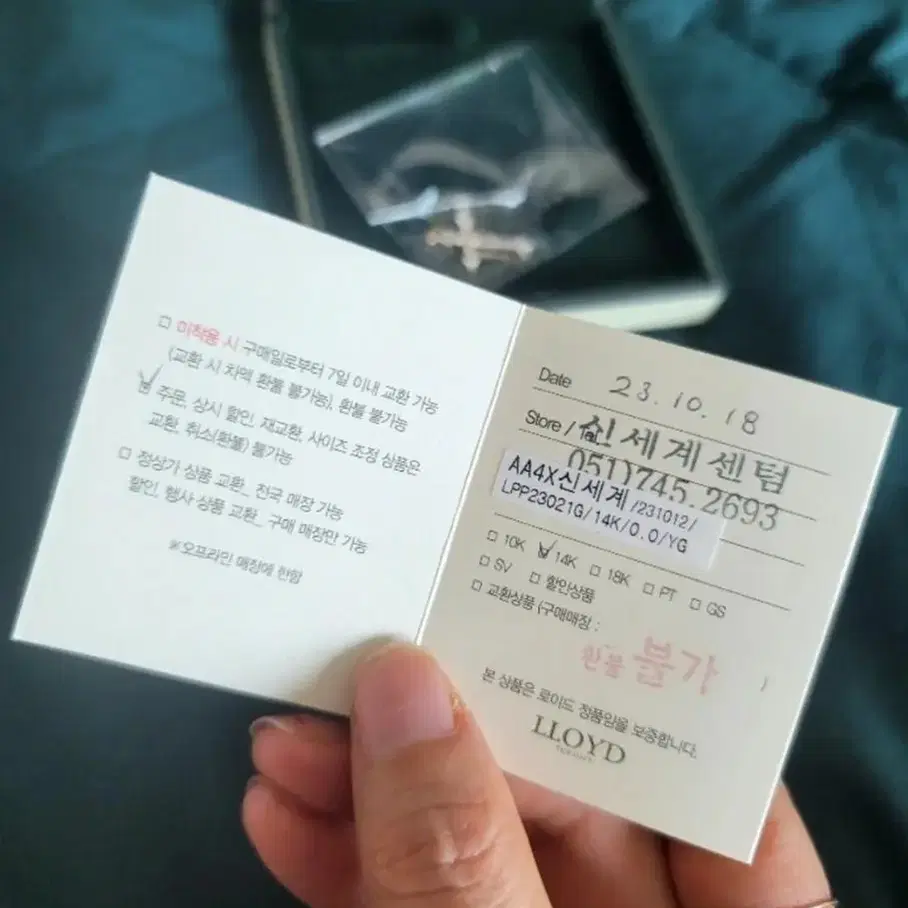 □ 미착용 시 구매일로부터 7일 이내 교환 가능
(교환 시 차액 환불 불가능), 환불 불가능
□ 주문, 상시 할인, 재교환, 사이즈 조정 상품은
교환, 취소(환불) 불가능
□ 정상가 상품 교환_ 전국 매장 가능
할인, 행사 상품 교환_ 구매 매장만 가능
※오프라인 매장에 한함
Date 23.10.18
Store / 신세계센텀
051)745.2693
AA4X신세계/231012/
LPP23021G/14K/0.0/YG
□ 10K ☑ 14K □ 18K □ PT □ GS
□ SV □ 할인상품
□ 교환상품 (구매매장 :
환불 불가 )
본 상품은 로이드 정품임을 보증합니다.
LLOYD